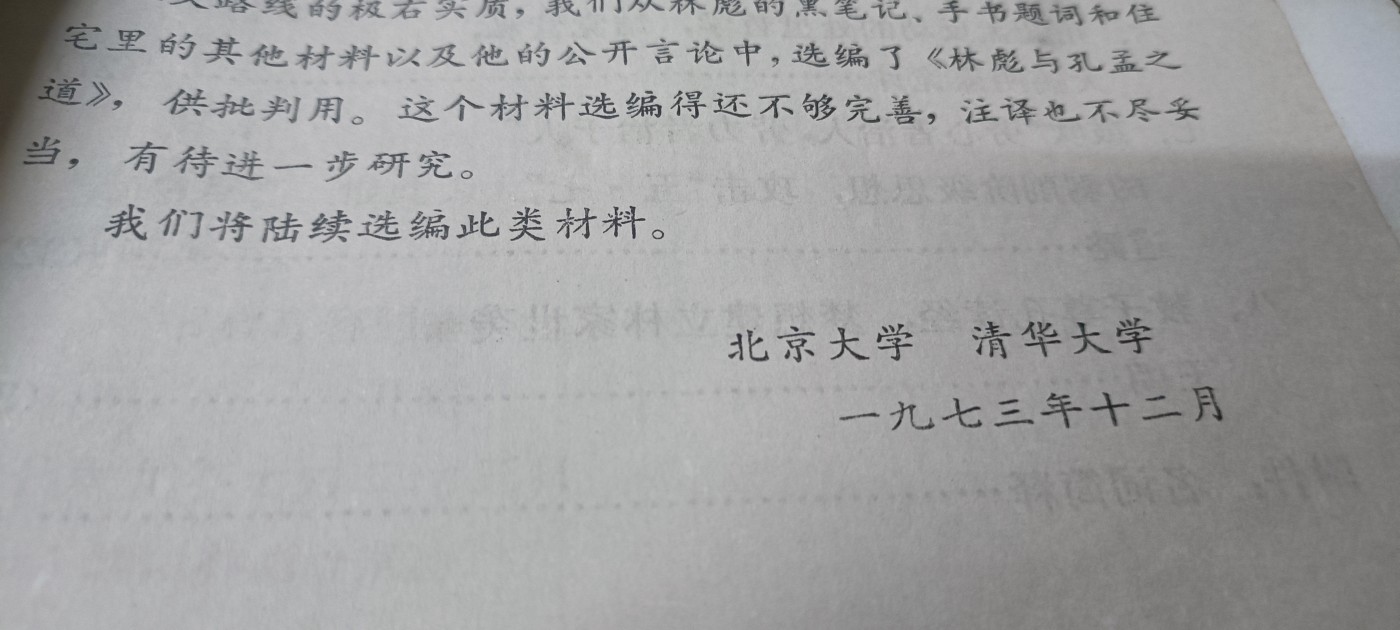 路线的极右实质，我们从林彪的黑笔记、手书题词和住
宅里的其他材料以及他的公开言论中，选编了《林彪与孔孟之
道》，供批判用。这个材料选编得还不够完善，注译也不尽妥
当，有待进一步研究。
我们将陆续选编此类材料。
北京大学 清华大学
一九七三年十二月